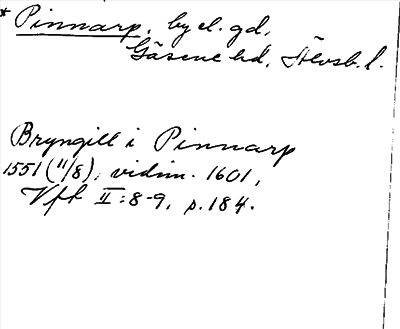 * Pinnarp, by el. gd,
Gäsene hd, Älvsb. l.
Bryngill i Pinnarp
1551 (11/8), vidim. 1601,
Vfh II:8-9, p. 184.